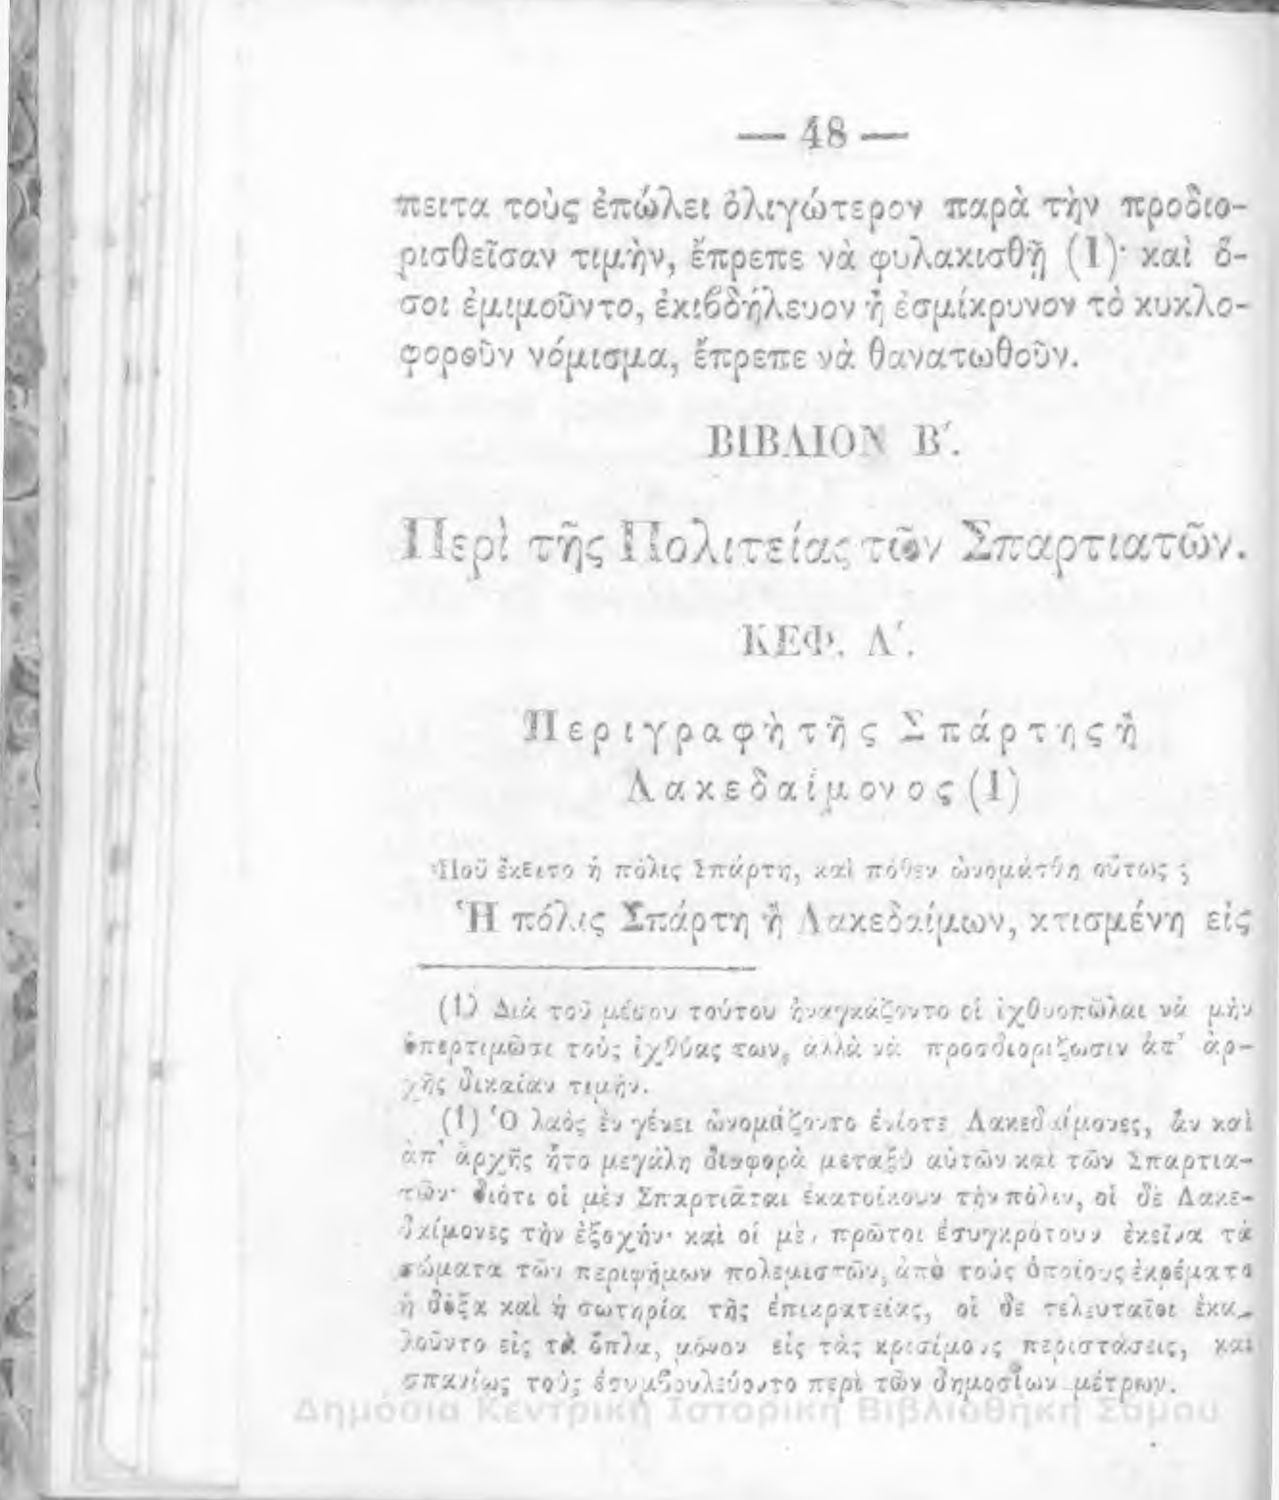 — 48 —
πειτα τοὺς ἐπώλει ὀλιγώτερον παρὰ τὴν προδιο-
ρισθεῖσαν τιμὴν, ἔπρεπε νὰ φυλακισθῇ (1)· καὶ ὅ-
σοι ἐμιμοῦντο, ἐκιβδήλευον ἢ ἐσμίκρυνον τὸ κυκλο-
φοροῦν νόμισμα, ἔπρεπε νὰ θανατωθοῦν.
ΒΙΒΛΙΟΝ Β΄.
Περὶ τῆς Πολιτείας τῶν Σπαρτιατῶν.
ΚΕΦ. Α΄.
Περιγραφὴ τῆς Σπάρτης ἢ
Λακεδαίμονος (1)
Ποῦ ἔκειτο ἡ πόλις Σπάρτη, καὶ πόθεν ὠνομάσθη οὕτως ;
Ἡ πόλις Σπάρτη ἢ Λακεδαίμων, κτισμένη εἰς
(1) Διὰ τοῦ μέσου τούτου ἠναγκάζοντο οἱ ἰχθυοπῶλαι νὰ μὴν
ὑπερτιμῶσι τοὺς ἰχθύας των, ἀλλὰ νὰ προσδιορίζωσιν ἀπ’ ἀρ-
χῆς δικαίαν τιμήν.
(1) Ὁ λαὸς ἐν γένει ὠνομάζοντο ἐνίοτε Λακεδαίμονες, ἂν καὶ
ἀπ’ ἀρχῆς ἦτο μεγάλη διαφορὰ μεταξὺ αὐτῶν καὶ τῶν Σπαρτια-
τῶν· διότι οἱ μὲν Σπαρτιᾶται ἐκατοίκουν τὴν πόλιν, οἱ δὲ Λακε-
δαίμονες τὴν ἐξοχήν· καὶ οἱ μὲν πρῶτοι ἐσυγκρότουν ἐκεῖνα τὰ
σώματα τῶν περιφήμων πολεμιστῶν, ἀπὸ τοὺς ὁποίους ἐκρέματο
ἡ δόξα καὶ ἡ σωτηρία τῆς ἐπικρατείας, οἱ δε τελευταῖοι ἐκα-
λοῦντο εἰς τὰ ὅπλα, μόνον εἰς τὰς κρισίμους περιστάσεις, καὶ
σπανίως τοὺς ἐσυμβουλεύοντο περὶ τῶν δημοσίων μέτρων.
Δημόσια Κεντρική Ιστορική Βιβλιοθήκη Σάμου